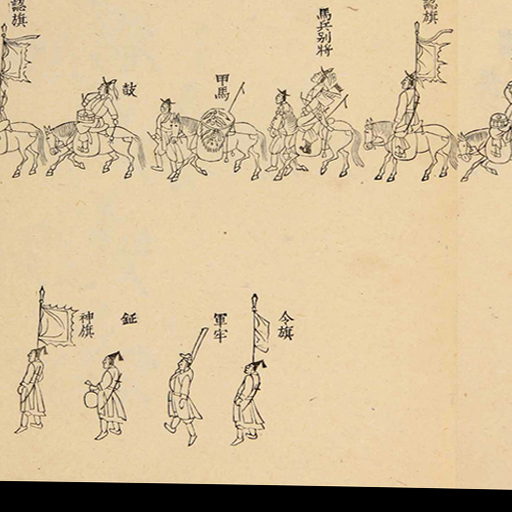 認旗
馬兵別將
甲馬
鼓
認旗
令旗
軍牢
鉦
神旗